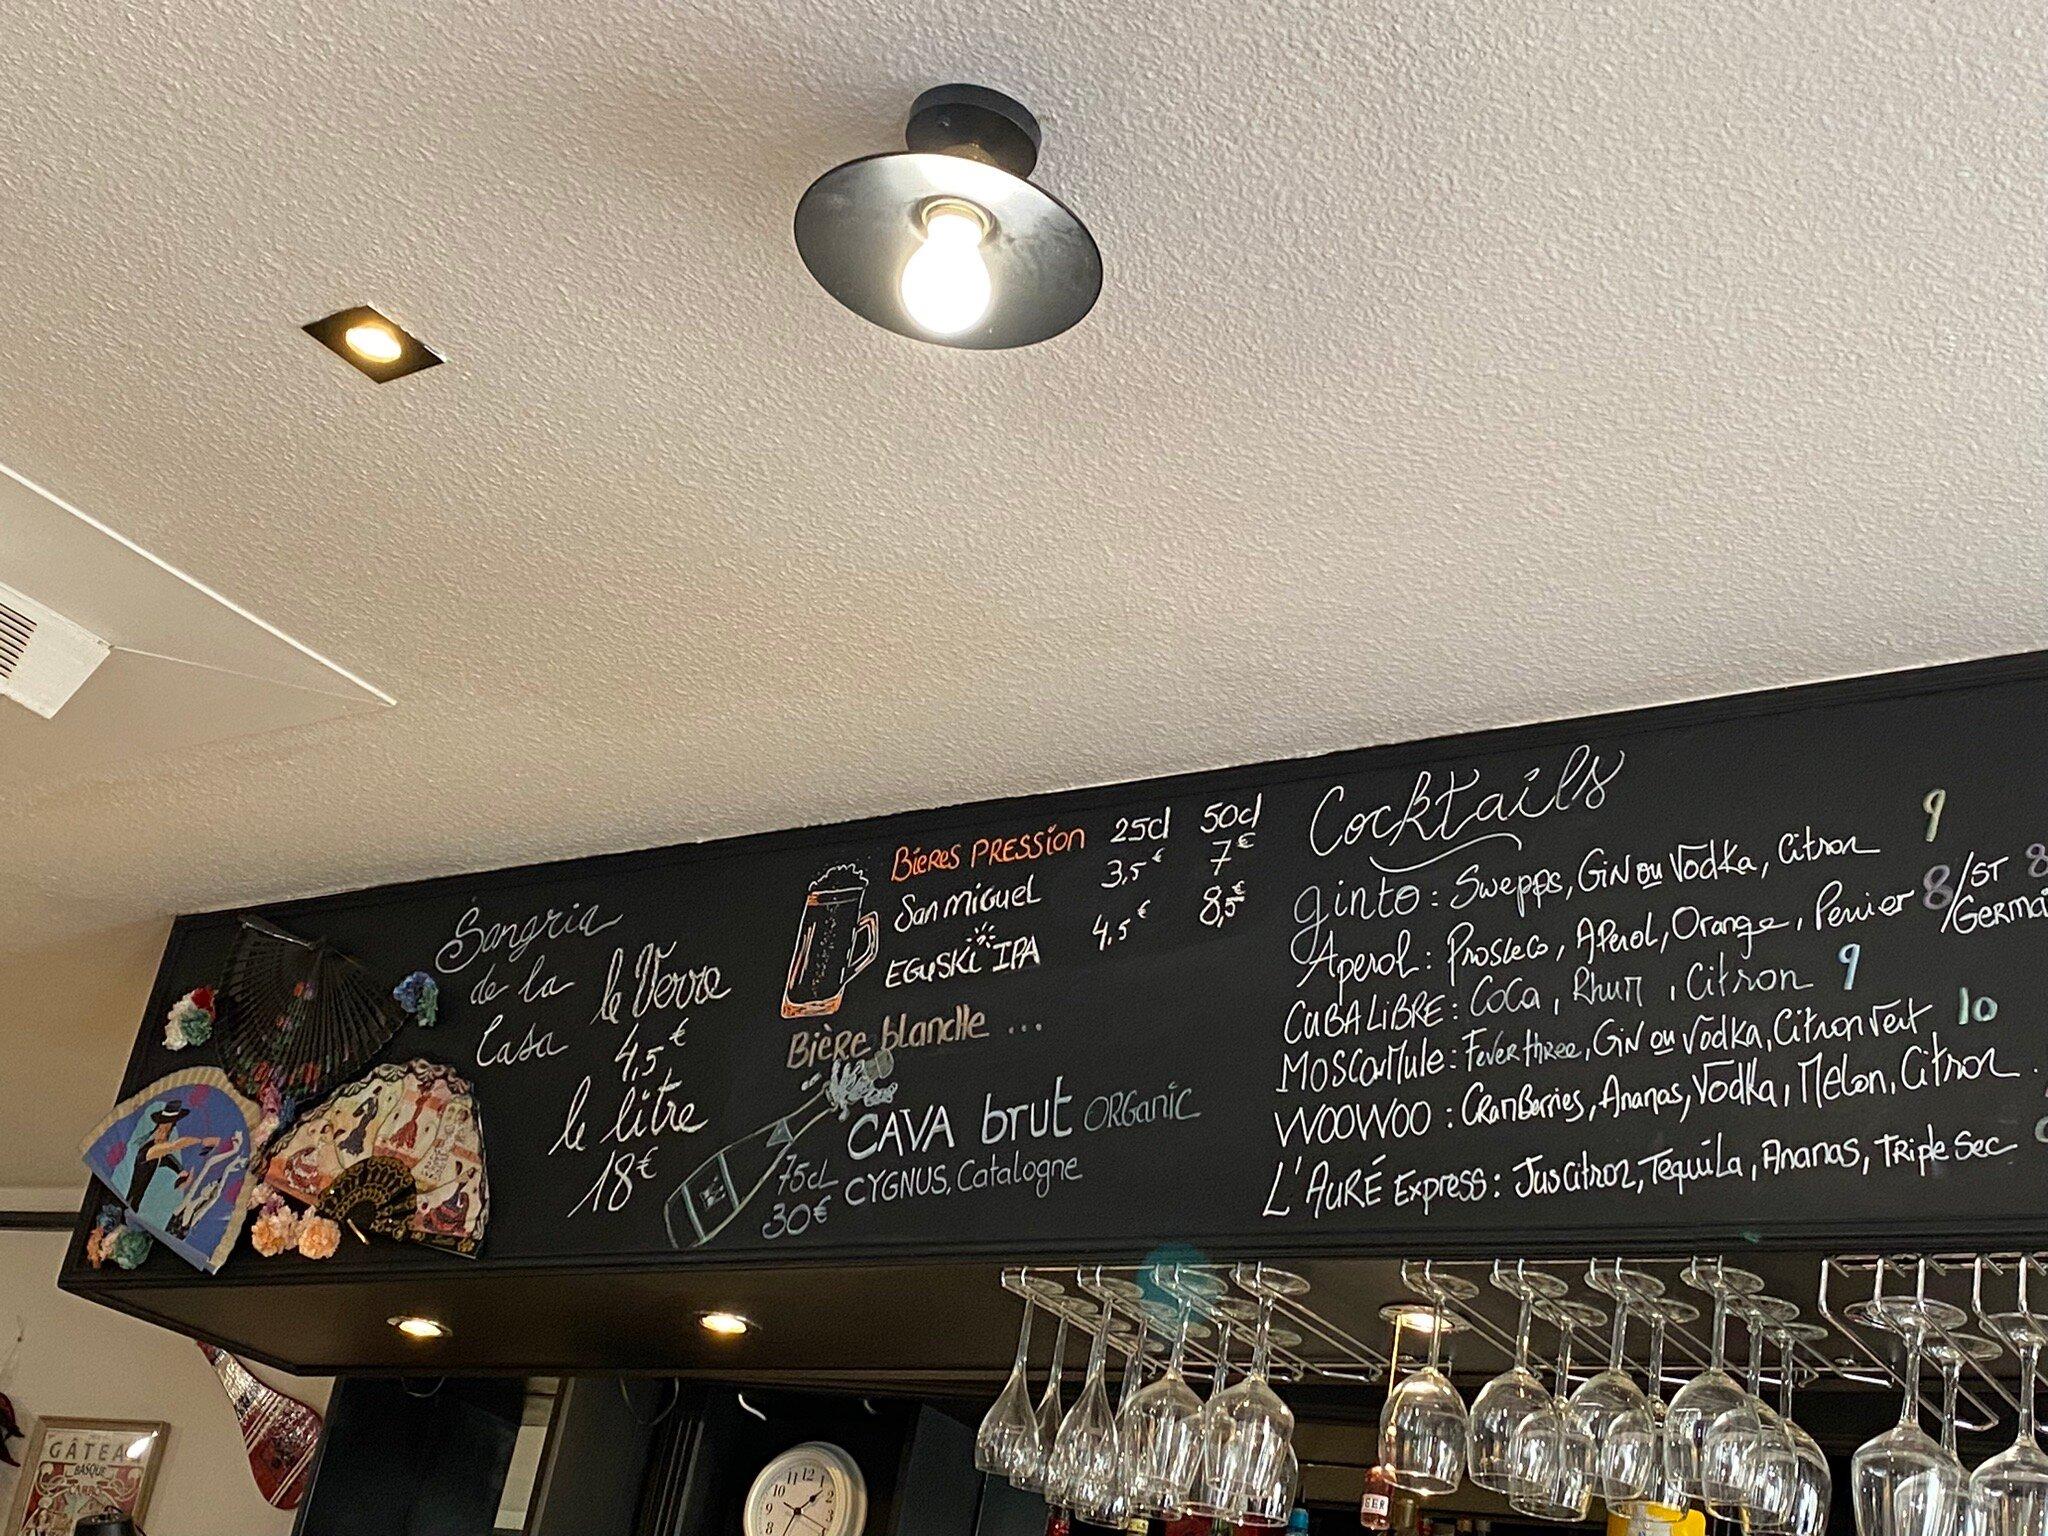 Sangria
de la
Casa
le Verre
4,5€
le litre
18€
Bieres PRESSion 25cl 50cl
San Miguel 3,5€ 7€
EGuSKi IPA 4,5€ 8,5€
Bière blanche ...
CAVA brut ORGanic
75cl CYGNUS, Catalogne
30€
Cocktails
ginto : Swepps, Gin ou Vodka, Citron 9
Aperol : Prosseco, Aperol, Orange, Perrier 8 /ST 8
/Germai
CUBA LiBRE : Coca, Rhum, Citron 9
MOSCOMule : Fever three, Gin ou Vodka, Citron Vert 10
WOOWOO : CranBerries, Ananas, Vodka, Melon, Citron.
L'AURÉ Express : Jus Citron, Tequila, Ananas, Triple Sec
GÂTEA
BASQUE
10 11 12 1 2 9 8
GER